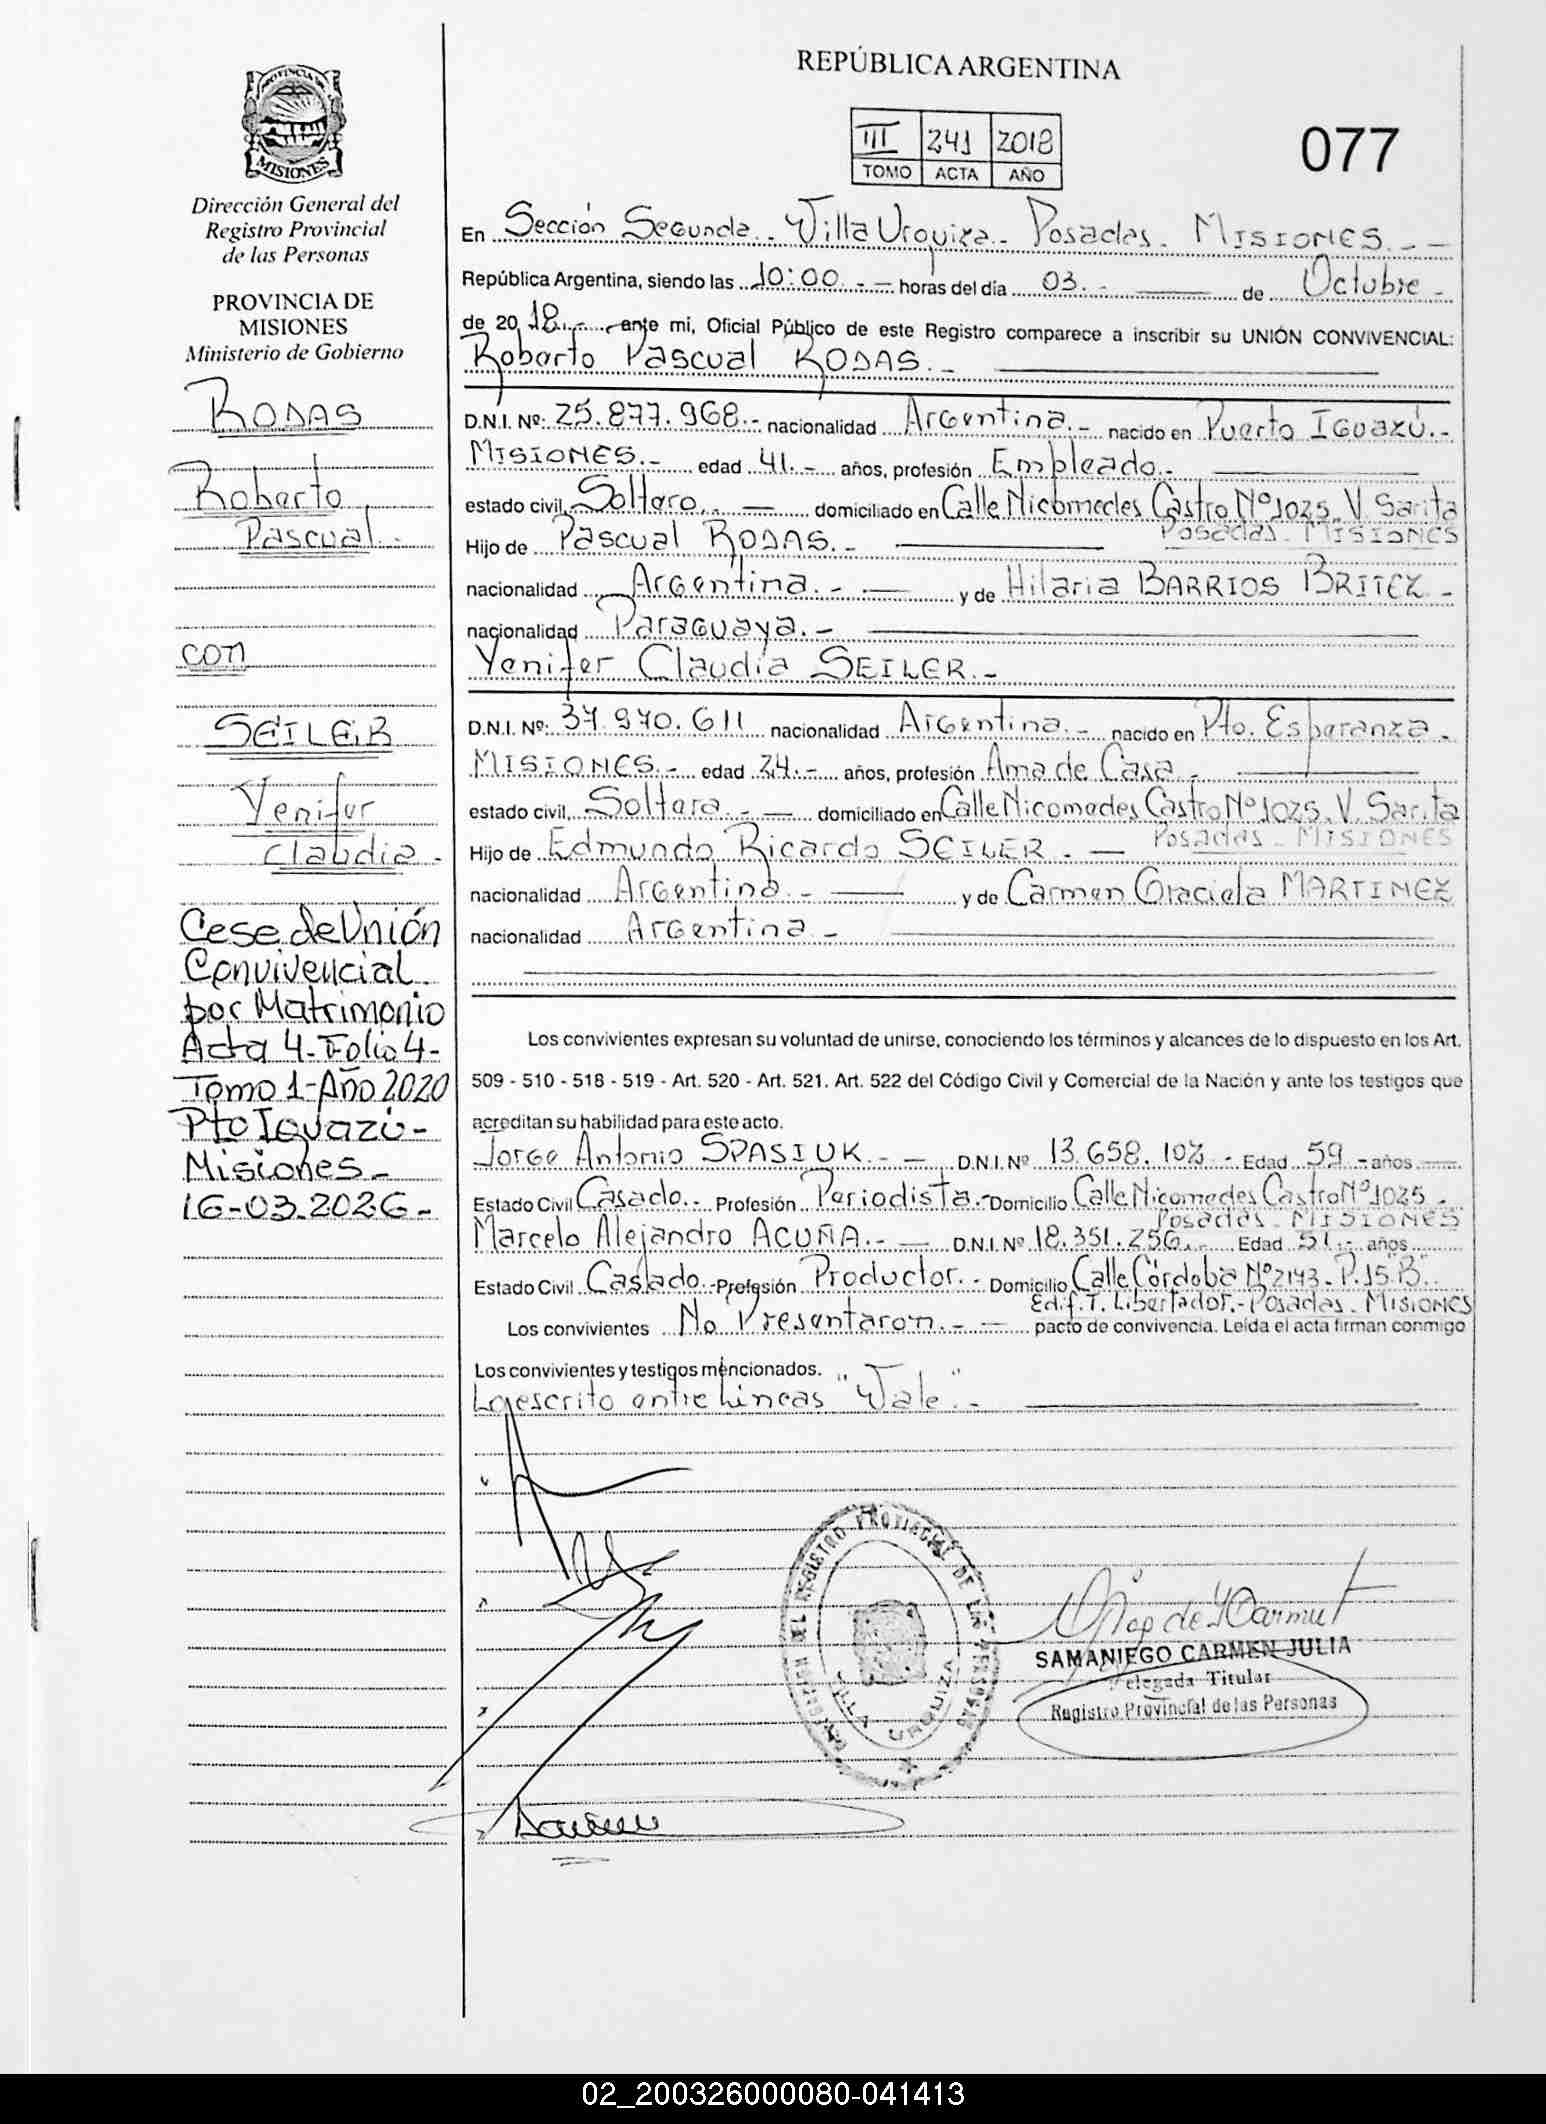 REPÚBLICA ARGENTINA
III 241 2018
TOMO ACTA AÑO
077
PROVINCIA
MISIONES
Dirección General del
Registro Provincial
de las Personas
PROVINCIA DE
MISIONES
Ministerio de Gobierno
RODAS
Roberto
Pascual.-
con
SEILER
Yenifer
Claudia.-
Cese de Unión
Convivencial
por Matrimonio
Acta 4-Folio 4-
Tomo 1-Año 2020
Pto Iguazú-
Misiones-
16-03.2026-
En Sección Segunda.- Villa Urquiza.- Posadas.- MISIONES.- -
República Argentina, siendo las 10:00.- - horas del día 03.- de Octubre.-
de 20 18.- ante mi, Oficial Público de este Registro comparece a inscribir su UNIÓN CONVIVENCIAL:
Roberto Pascual RODAS.-
D.N.I. Nº: 25.877.968.- nacionalidad Argentina.- nacido en Puerto Iguazú.-
MISIONES.- edad 41.- años, profesión Empleado.-
estado civil, Soltero.- domiciliado en Calle Nicomedes Castro Nº1025. V. Sarita
Posadas. MISIONES
Hijo de Pascual RODAS.-
nacionalidad Argentina.- y de Hilaria BARRIOS BRITEZ.-
nacionalidad Paraguaya.-
Yenifer Claudia SEILER.-
D.N.I. Nº: 37.970.611 nacionalidad Argentina.- nacido en Pto. Esperanza.-
MISIONES.- edad 24.- años, profesión Ama de Casa.-
estado civil, Soltera.- domiciliado en Calle Nicomedes Castro Nº1025. V. Sarita
Posadas - MISIONES
Hijo de Edmundo Ricardo SEILER.-
nacionalidad Argentina.- y de Carmen Graciela MARTINEZ
nacionalidad Argentina.-
Los convivientes expresan su voluntad de unirse, conociendo los términos y alcances de lo dispuesto en los Art.
509 - 510 - 518 - 519 - Art. 520 - Art. 521. Art. 522 del Código Civil y Comercial de la Nación y ante los testigos que
acreditan su habilidad para este acto.
Jorge Antonio SPASIUK.- D.N.I. Nº Edad 59.- años
Estado Civil Casado.- Profesión Periodista.- Domicilio Calle Nicomedes Castro Nº1025.-
Posadas. MISIONES
Marcelo Alejandro ACUÑA.- D.N.I. Nº 18.351.256.- Edad 51.- años
Estado Civil Casado.- Profesión Productor.- Domicilio Calle Córdoba Nº2143. P.15"B".
Edif. T. Libertador.- Posadas. MISIONES
Los convivientes No Presentaron.- pacto de convivencia. Leída el acta firman conmigo
Los convivientes y testigos mencionados.
Lo escrito entre Líneas "Vale".-
REGISTRO PROVINCIAL DE LAS PERSONAS
VILLA URQUIZA
SAMANIEGO CARMEN JULIA
Delegada Titular
Registro Provincial de las Personas
02_200326000080-041413